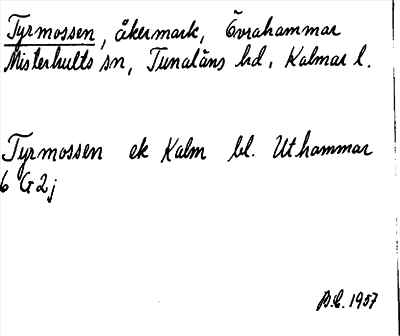 Tyrmossen, åkermark, Övrahammar
Misterhults sn, Tunaläns hd, Kalmar l.
Tyrmossen ek Kalm bl. Uthammar
6 G2j
B.E. 1957